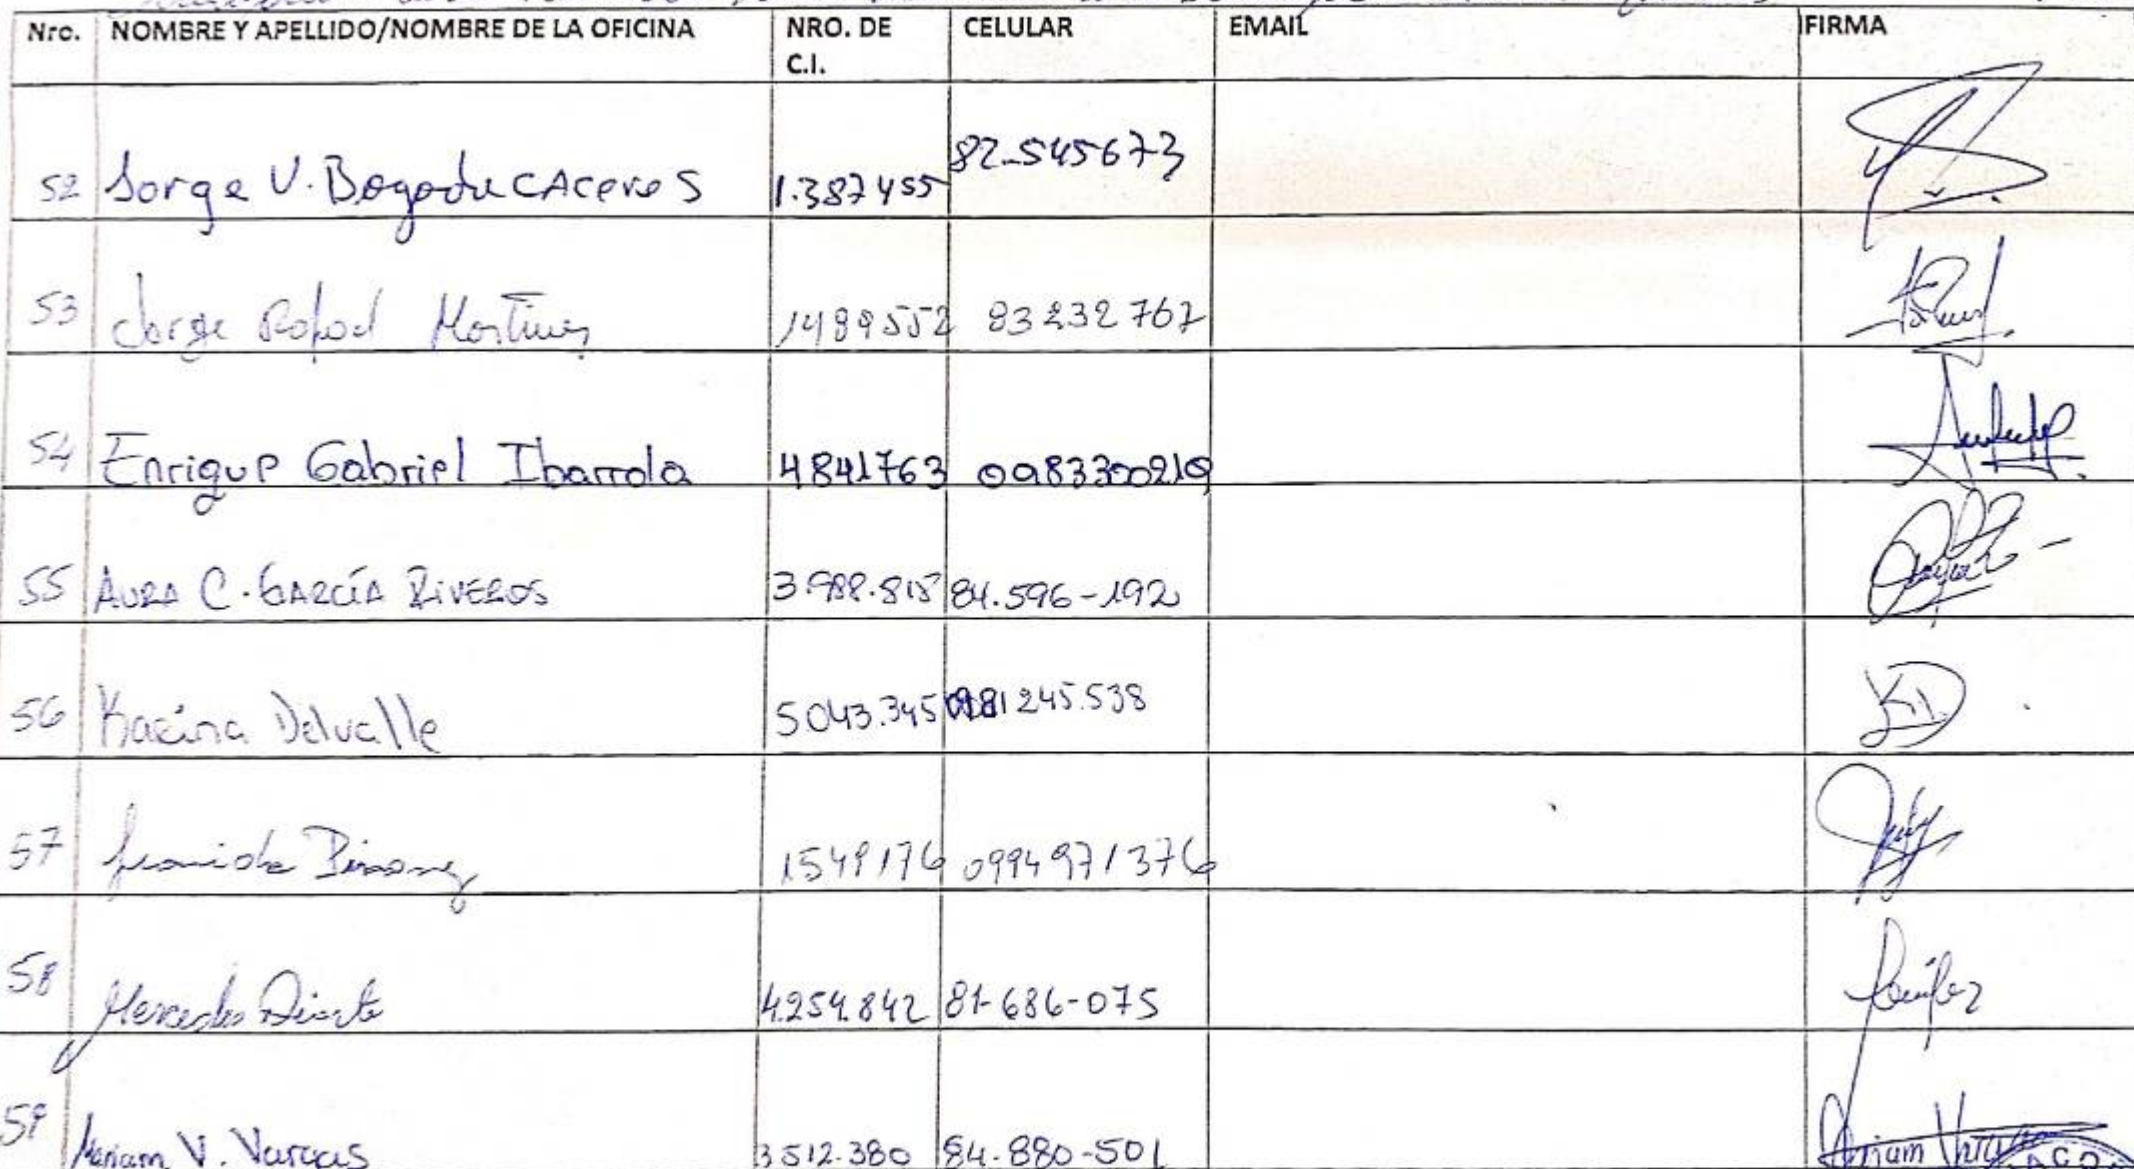 Nro. NOMBRE Y APELLIDO/NOMBRE DE LA OFICINA NRO. DE C.I. CELULAR EMAIL FIRMA
52 Jorge V. Bogado CACeres 1.387455 82-545673
53 Jorge Rafael Martinez 1489552 83232767
54 Enrique Gabriel Ibarrola 4841763 0983300219
55 AURA C. GARCÍA RIVEROS 3.988.815 84.596-192
56 Karina Delvalle 5043.345 0981245.538
57 1549176 0994971376
58 Mercedes Duarte 4.254.842 81-686-075
59 Mariam V. Vargas 3512.380 84.880-501